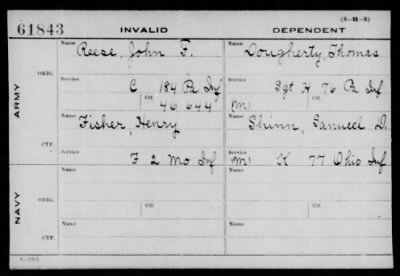 (3-11-5)
61843 INVALID DEPENDENT
Name Reese, John F. Name Dougherty, Thomas
ARMY
ORIG.
Service C 184 Pa Inf Service Sgt H 76 Pa Inf
Ctf. 46 644 Ctf. (M)
Name Fisher, Henry Name Shinn, Samuel D.
CTF.
Service F 2 Mo Inf Service (M) K 77 Ohio Inf
NAVY
Name Name
ORIG.
Ctf. Ctf.
Name Name
CTF.